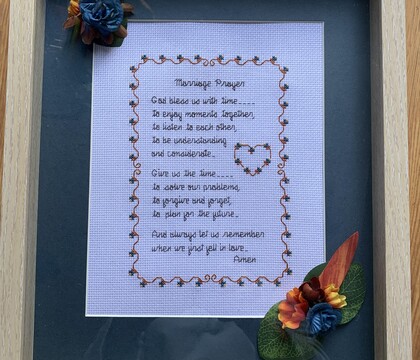 Marriage Prayer
God bless us with time____
to enjoy moments together,
to listen to each other,
to be understanding
and considerate_
Give us the time____
to solve our problems,
to forgive and forget,
to plan for the future_
And always let us remember
when we first fell in love_
Amen